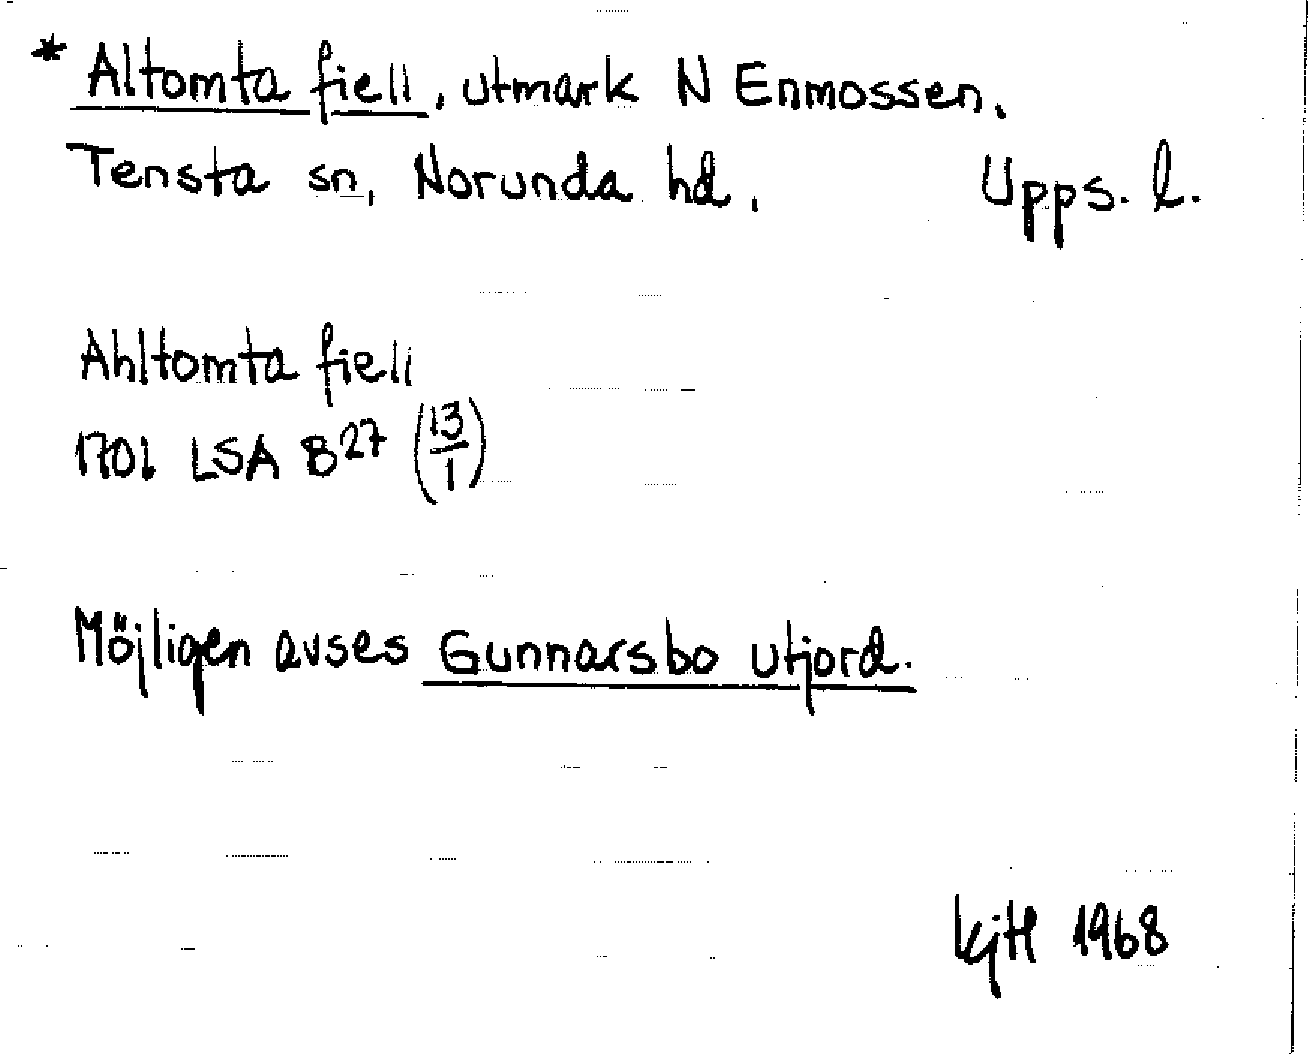 * Altomta fiell, utmark N Enmossen.
Tensta sn, Norunda hd. Upps. l.
Ahltomta fiell
1701 LSA B27 (13/1)
Möjligen avses Gunnarsbo utjord.
1968